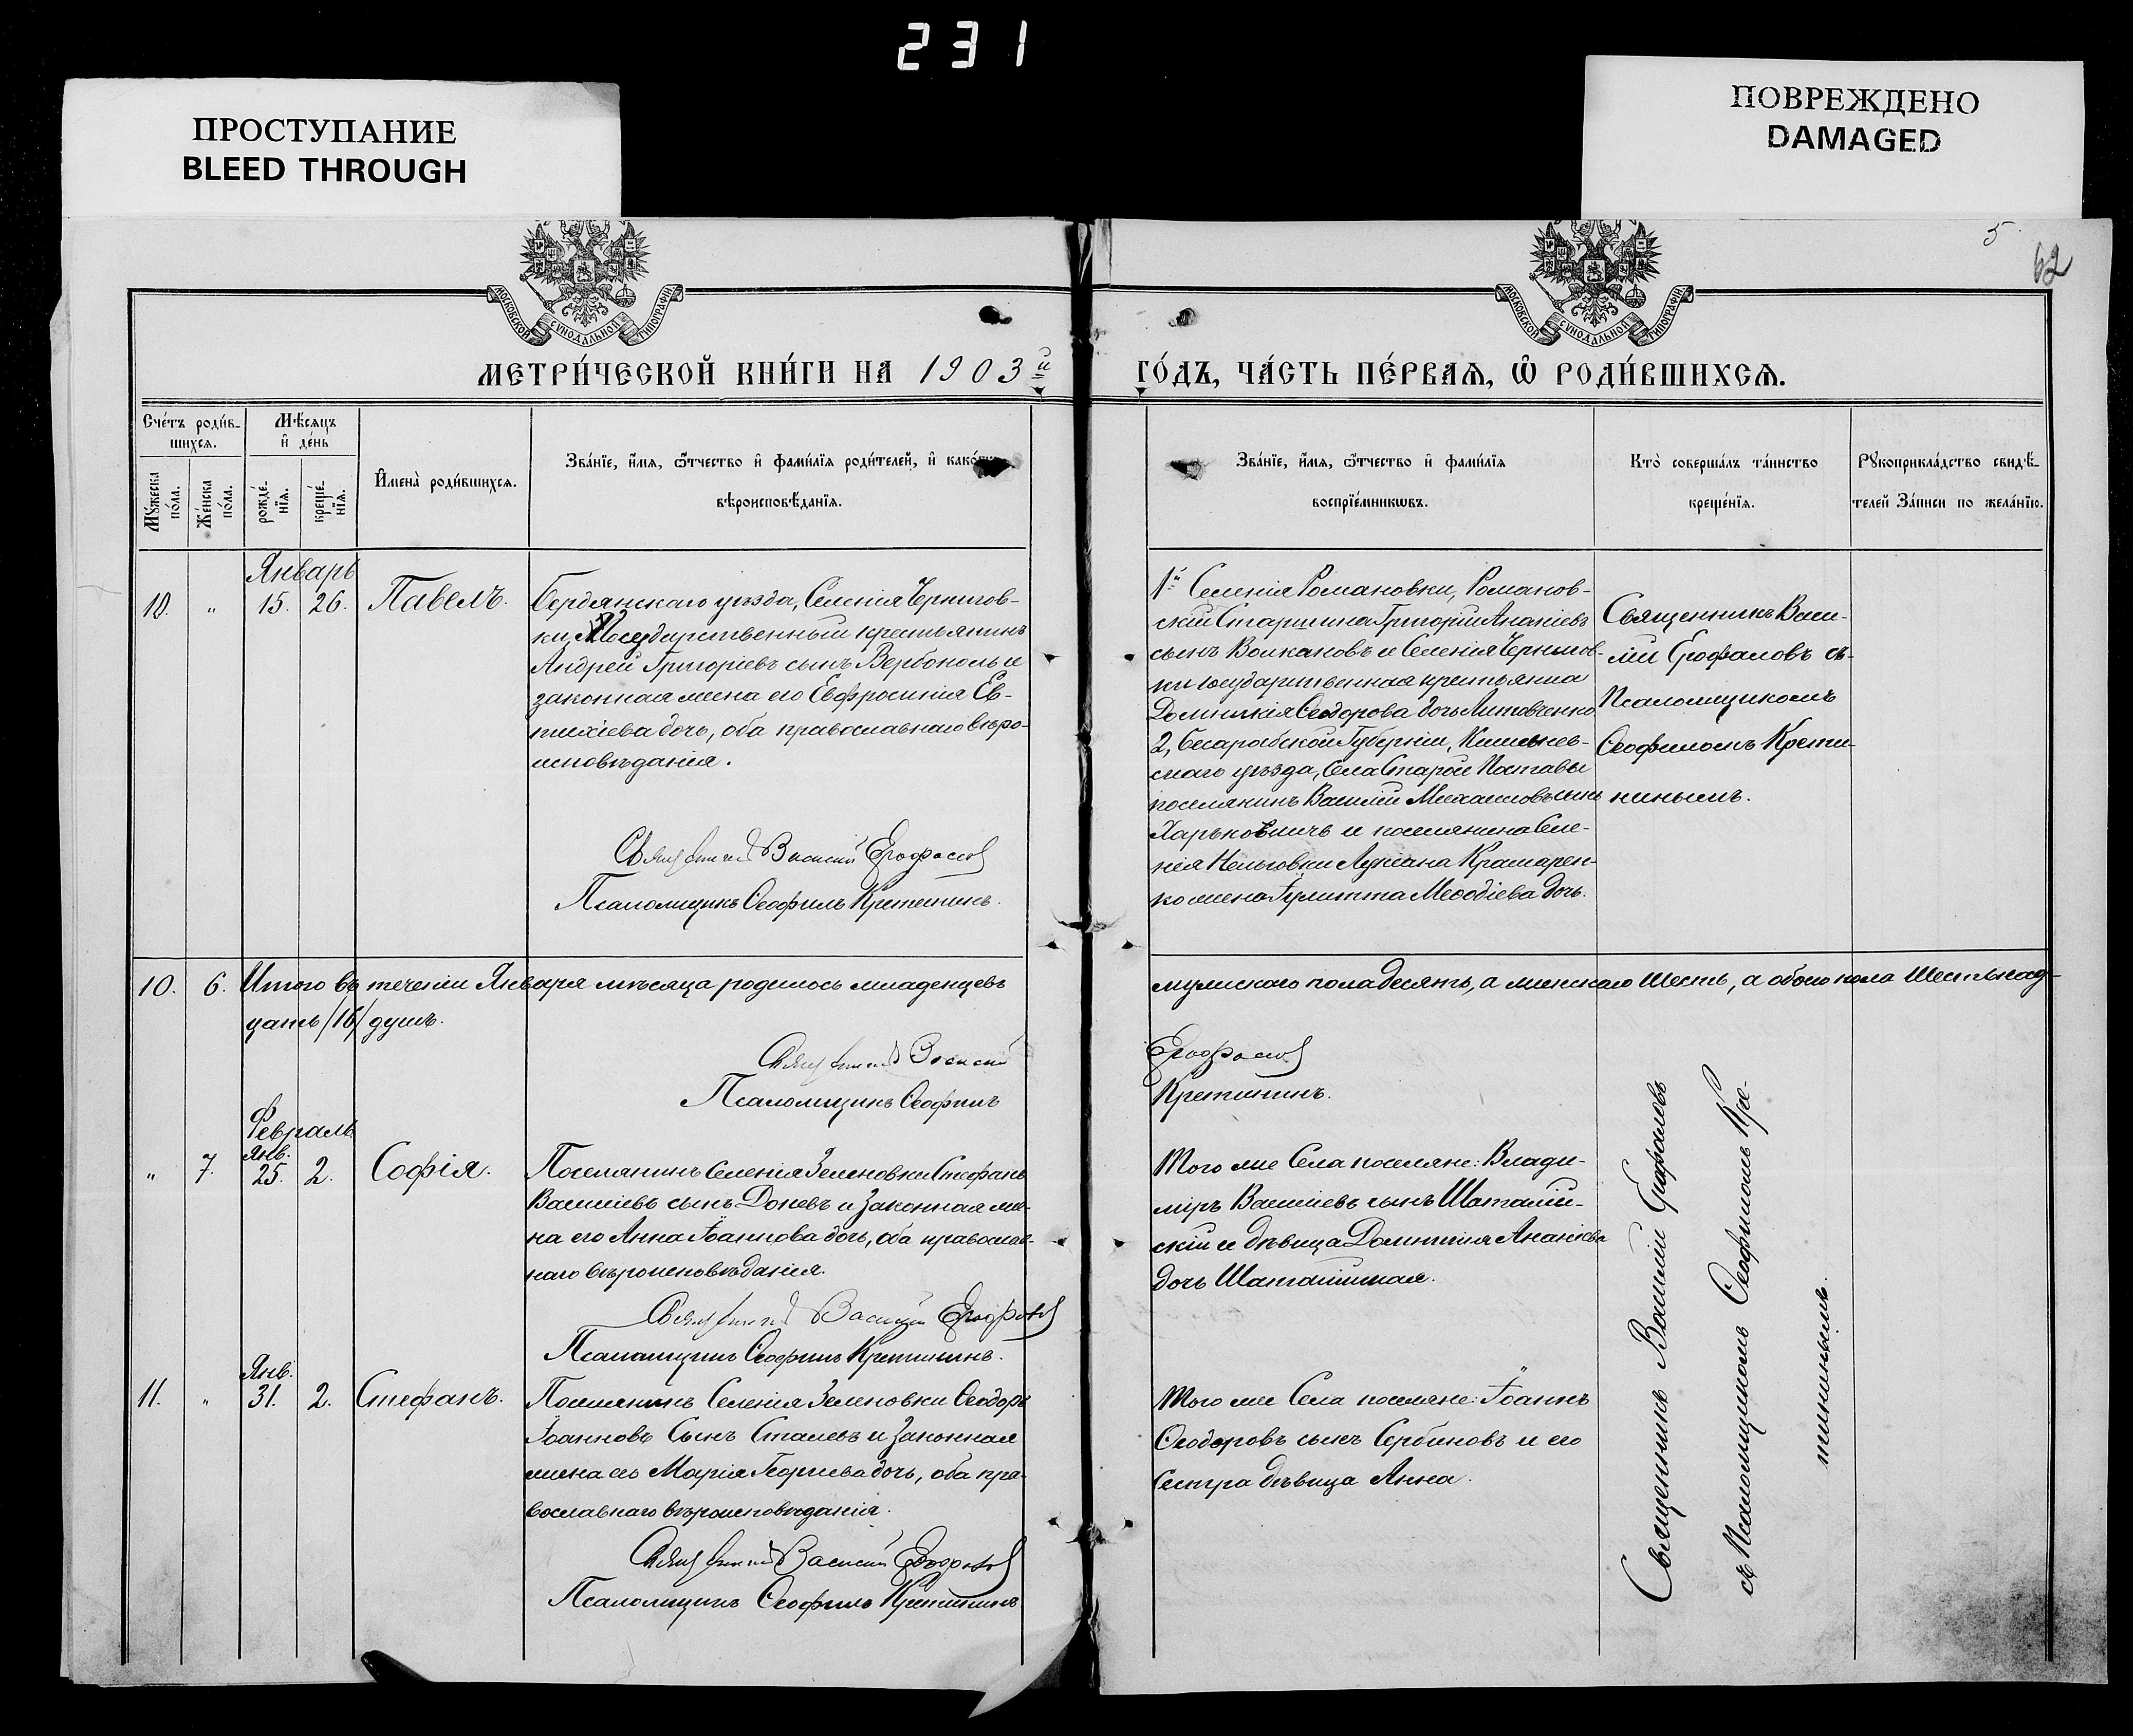 231
ПРОСТУПАНИЕ
BLEED THROUGH
ПОВРЕЖДЕНО
DAMAGED
5
62
МОСКОВСКОЙ СѴНОДАЛЬНОЙ ТИПОГРАФІИ
МОСКОВСКОЙ СѴНОДАЛЬНОЙ ТИПОГРАФІИ
МЕТРИ́ЧЕСКОЙ КНИ́ГИ НА 1903й
ГО́ДЪ, ЧА́СТЬ ПЕ́РВАѦ, Ѡ҆ РОДИ́ВШИХСѦ.
Сче́тъ роди́в-
шихся.
Мѣ́сяцъ
и҆ де́нь
Мꙋ́жеска по́ла.
Же́нска по́ла.
рожде́нїя.
креще́нїя.
И҆мена̀ роди́вшихся.
Зва́нїе, и҆́мя, ѻ҆́тчество и҆ фами́лїя роди́телей, и҆
вѣроисповѣ́данїя.
Зва́нїе, и҆́мя, ѻ҆́тчество и҆ фами́лїя
воспрїе́мникѡвъ.
Кто̀ соверша́лъ та́инство
креще́нїя.
Рꙋкоприкла́дство свидѣ́-
телей За́писи по жела́нїю.
Январь
10. " 15. 26. Павелъ.
Бердянскаго уѣзда, Селенія Чернигов-
ки, Государственный крестьянинъ
Андрей Григоріевъ сынъ Вербоноль и
законная жена его Евфросинія Ев-
тихіева дочь, оба православнаго вѣро-
исповѣданія.
Священникъ Василій Ерофаловъ
Псаломщикъ Ѳеофилъ Кретининъ.
1й Селенія Романовки, Романов-
скій Старшина Григорій Ананіевъ
сынъ Волкановъ и Селенія Чернигов-
ки государственная крестьянка
Домникія Ѳеодорова дочь Литовченко
2, Бесарабской Губерніи, Кишинев-
скаго уѣзда, Села Старой
поселянинъ Василій Михаиловъ сынъ
Харьковичъ и поселянина Селе-
нія Нельговки Лукіана Крамарен-
ко жена Іулитта Меѳодіева дочь.
Священникъ Васи-
лій Ерофаловъ съ
Псаломщикомъ
Ѳеофиломъ Крети-
нинымъ.
10. 6. Итого въ теченіи Января мѣсяца родилось младенцевъ
мужскаго пола десять, а женскаго шесть, а обоего пола шестьнад-
цать /16/ душъ.
Священникъ Василій
Ерофаловъ
Псаломщикъ Ѳеофилъ
Кретининъ.
Февраль
Янв.
" 7. 25. 2. Софія.
Поселянинъ Селенія Зеленовки Стефанъ
Василіевъ сынъ Доневъ и законная же-
на его Анна Іоаннова дочь, оба православ-
наго вѣроисповѣданія.
Священникъ Василій Ерофаловъ
Псаломщикъ Ѳеофилъ Кретининъ.
Того же Села поселяне: Влади-
міръ Василіевъ сынъ Шаталій-
скій и дѣвица Домникія Ананіева
дочь Шаталійская.
Янв.
11. " 31. 2. Стефанъ.
Поселянинъ Селенія Зеленовки Ѳеодоръ
Іоанновъ Сынъ Сталевъ и законная
жена его Марія Георгіева дочь, оба пра-
вославнаго вѣроисповѣданія.
Священникъ Василій Ерофаловъ
Псаломщикъ Ѳеофилъ Кретининъ
Того же Села поселяне: Іоаннъ
Ѳеодоровъ сынъ Сербиновъ и его
Сестра дѣвица Анна.
Священникъ Василій Ерофаловъ
съ Псаломщикомъ Ѳеофиломъ Кре-
тининымъ.